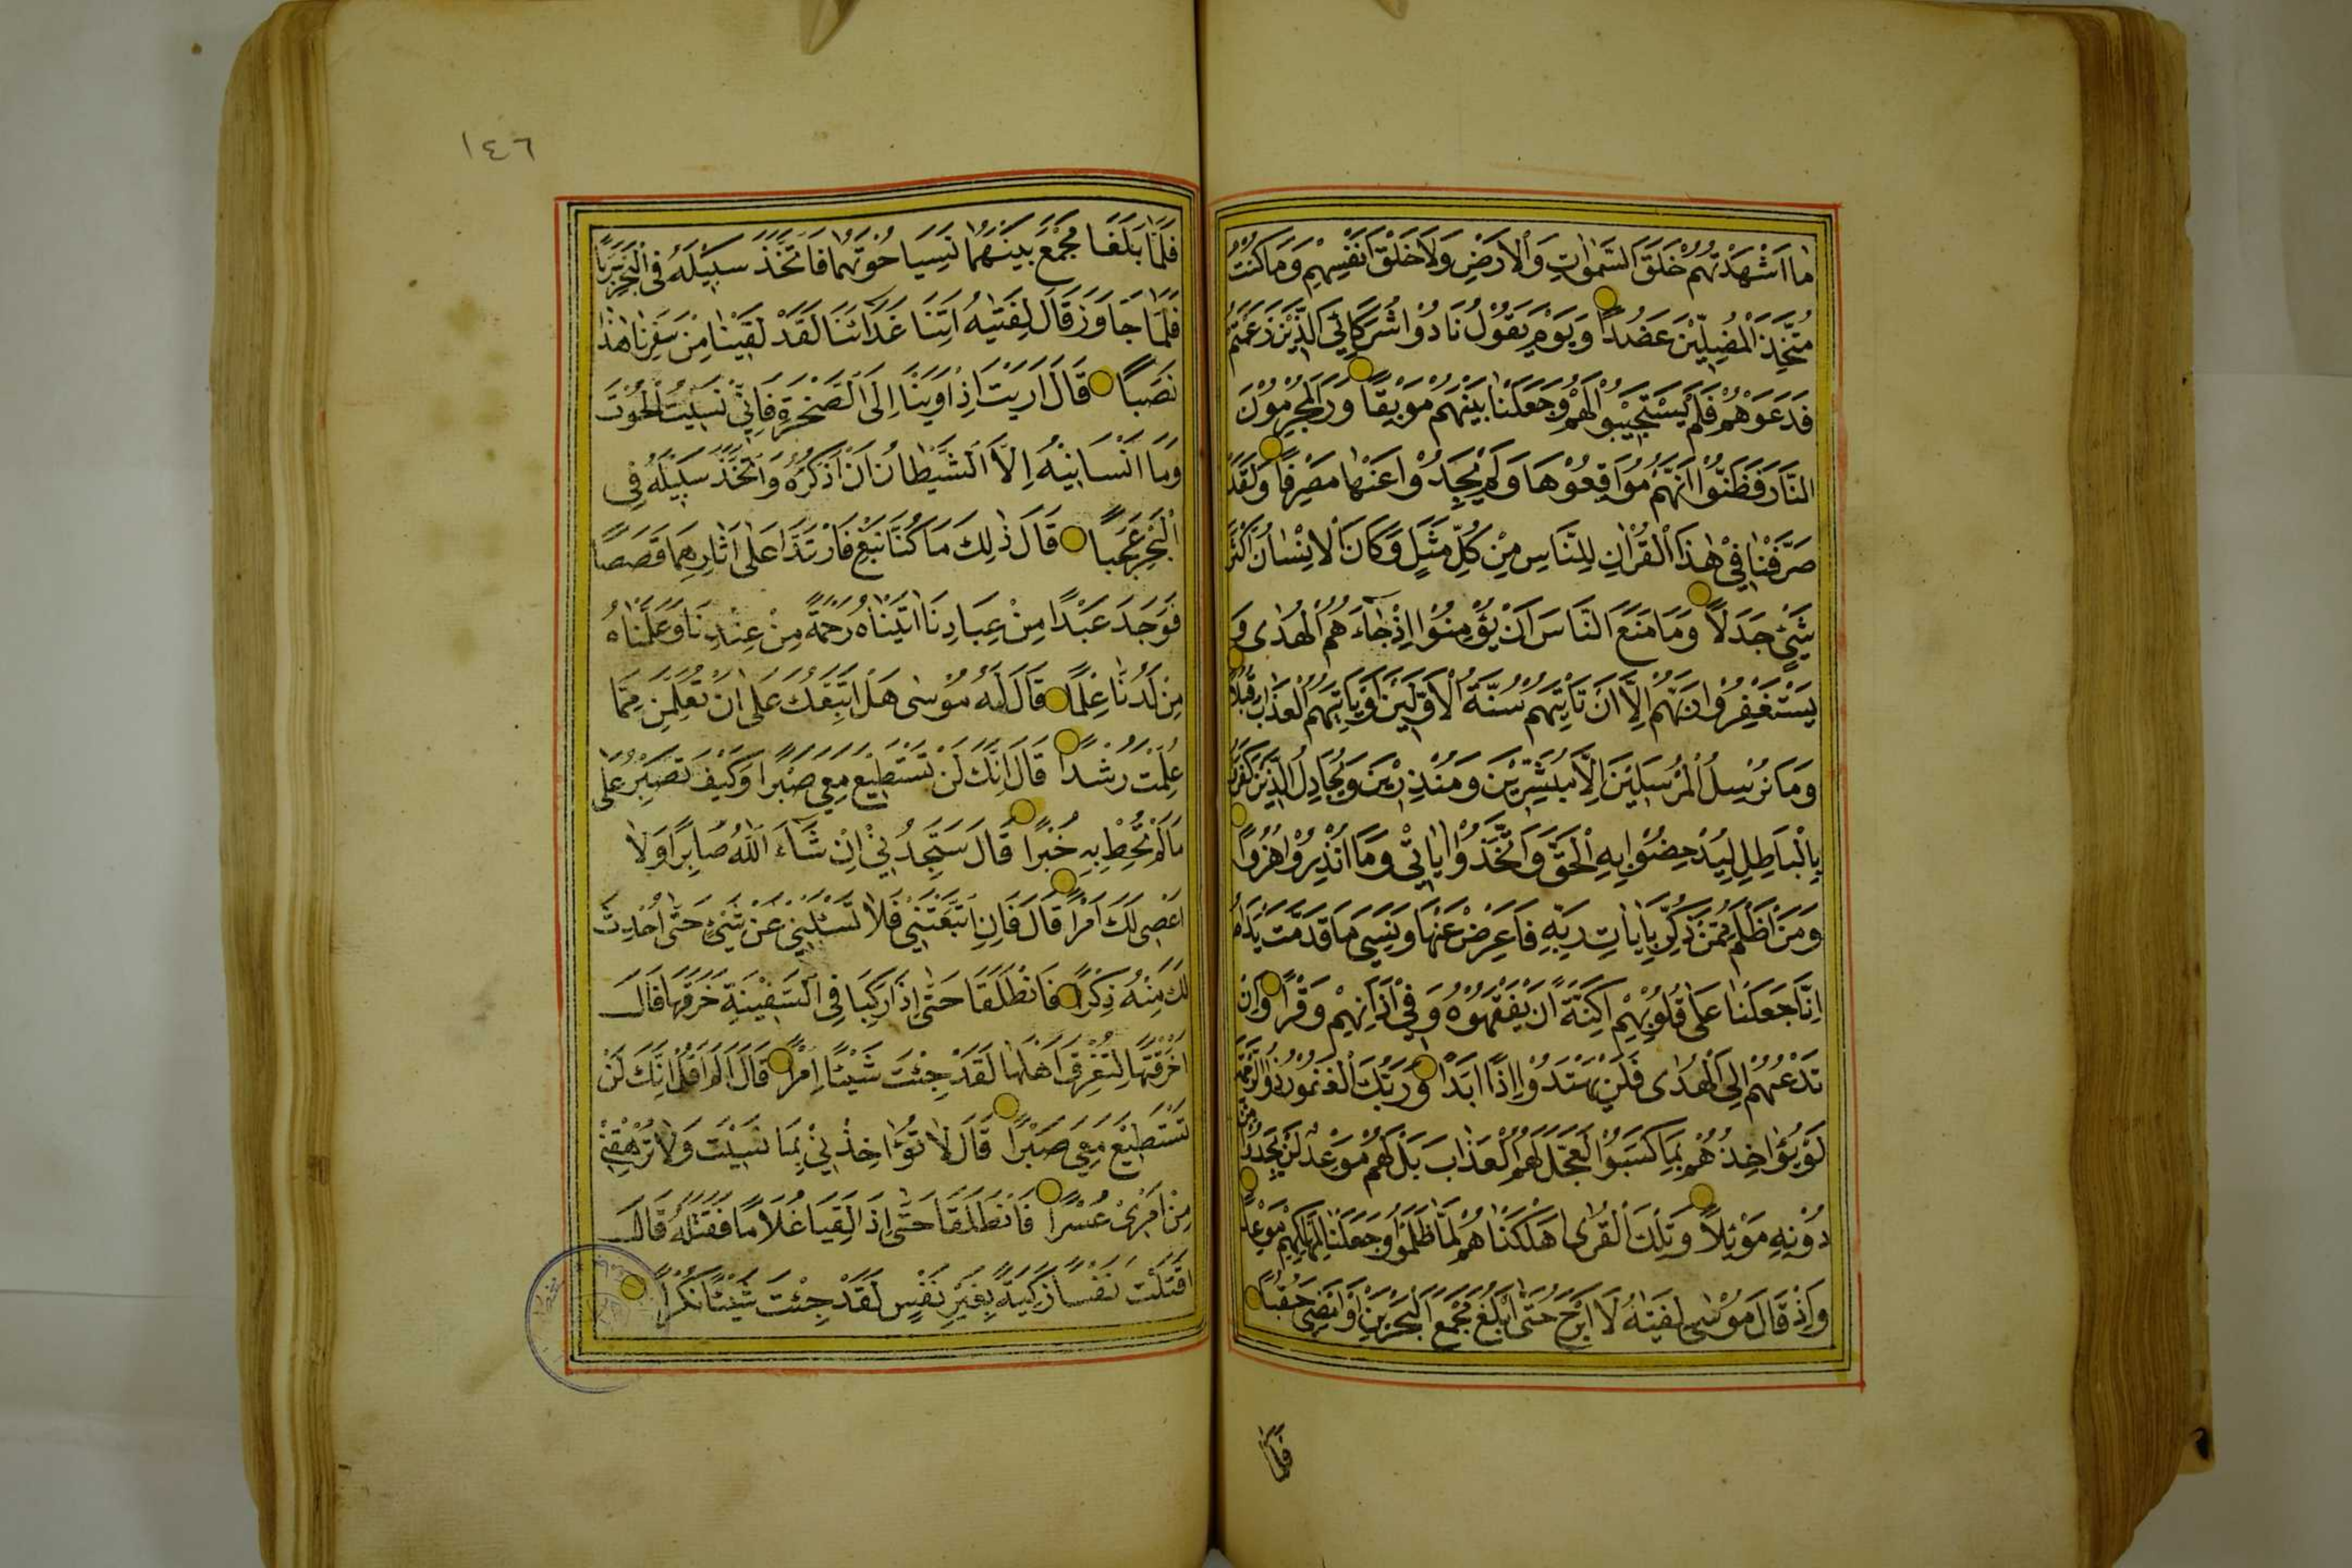 مَا اَشْهَدْتُهُمْ خَلْقَ السَّمٰوَاتِ وَالْاَرْضِ وَلَا خَلْقَ اَنْفُسِهِمْ وَمَا كُنْتُ
مُتَّخِذَ الْمُضِلِّيْنَ عَضُدًا وَيَوْمَ يَقُوْلُ نَادُوْا شُرَكَائِيَ الَّذِيْنَ زَعَمْتُمْ
فَدَعَوْهُمْ فَلَمْ يَسْتَجِيْبُوْا لَهُمْ وَجَعَلْنَا بَيْنَهُمْ مَوْبِقًا وَرَاَ الْمُجْرِمُوْنَ
النَّارَ فَظَنُّوْا اَنَّهُمْ مُوَاقِعُوْهَا وَلَمْ يَجِدُوْا عَنْهَا مَصْرِفًا وَلَقَدْ
صَرَّفْنَا فِيْ هٰذَا الْقُرْاٰنِ لِلنَّاسِ مِنْ كُلِّ مَثَلٍ وَكَانَ الْاِنْسَانُ اَكْثَرَ
شَيْئٍ جَدَلًا وَمَا مَنَعَ النَّاسَ اَنْ يُؤْمِنُوْا اِذْ جَاۤءَهُمُ الْهُدٰى وَ
يَسْتَغْفِرُوْا رَبَّهُمْ اِلَّا اَنْ تَاْتِيَهُمْ سُنَّةُ الْاَوَّلِيْنَ اَوْ يَاْتِيَهُمُ الْعَذَابُ قُبُلًا
وَمَا نُرْسِلُ الْمُرْسَلِيْنَ اِلَّا مُبَشِّرِيْنَ وَمُنْذِرِيْنَ وَيُجَادِلُ الَّذِيْنَ كَفَرُوْا
بِالْبَاطِلِ لِيُدْحِضُوْا بِهِ الْحَقَّ وَاتَّخَذُوْا اٰيَاتِيْ وَمَا اُنْذِرُوْا هُزُوًا
وَمَنْ اَظْلَمُ مِمَّنْ ذُكِّرَ بِاٰيَاتِ رَبِّهِ فَاَعْرَضَ عَنْهَا وَنَسِيَ مَا قَدَّمَتْ يَدَاهُ
اِنَّا جَعَلْنَا عَلٰى قُلُوْبِهِمْ اَكِنَّةً اَنْ يَفْقَهُوْهُ وَفِيْ اٰذَانِهِمْ وَقْرًا وَاِنْ
تَدْعُهُمْ اِلَى الْهُدٰى فَلَنْ يَهْتَدُوْا اِذًا اَبَدًا وَرَبُّكَ الْغَفُوْرُ ذُو الرَّحْمَةِ
لَوْ يُؤَاخِذُهُمْ بِمَا كَسَبُوْا لَعَجَّلَ لَهُمُ الْعَذَابَ بَلْ لَهُمْ مَوْعِدٌ لَنْ يَجِدُوْا مِنْ
دُوْنِهِ مَوْئِلًا وَتِلْكَ الْقُرٰى اَهْلَكْنَاهُمْ لَمَّا ظَلَمُوْا وَجَعَلْنَا لِمَهْلِكِهِمْ مَوْعِدًا
وَاِذْ قَالَ مُوْسٰى لِفَتٰيهُ لَا اَبْرَحُ حَتّٰى اَبْلُغَ مَجْمَعَ الْبَحْرَيْنِ اَوْ اَمْضِيَ حُقُبًا
فَلَمَّا
١٤٦
فَلَمَّا بَلَغَا مَجْمَعَ بَيْنِهِمَا نَسِيَا حُوْتَهُمَا فَاتَّخَذَ سَبِيْلَهُ فِى الْبَحْرِ سَرَبًا
فَلَمَّا جَاوَزَا قَالَ لِفَتٰيهُ اٰتِنَا غَدَائَنَا لَقَدْ لَقِيْنَا مِنْ سَفَرِنَا هٰذَا
نَصَبًا قَالَ اَرَيْتَ اِذْ اَوَيْنَا اِلَى الصَّخْرَةِ فَاِنِّيْ نَسِيْتُ الْحُوْتَ
وَمَا اَنْسَانِيْهُ اِلَّا الشَّيْطَانُ اَنْ اَذْكُرَهُ وَاتَّخَذَ سَبِيْلَهُ فِي
الْبَحْرِ عَجَبًا قَالَ ذٰلِكَ مَا كُنَّا نَبْغِ فَارْتَدَّا عَلٰى اٰثَارِهِمَا قَصَصًا
فَوَجَدَ عَبْدًا مِنْ عِبَادِنَا اٰتَيْنَاهُ رَحْمَةً مِنْ عِنْدِنَا وَعَلَّمْنَاهُ
مِنْ لَدُنَّا عِلْمًا قَالَ لَهُ مُوْسٰى هَلْ اَتَّبِعُكَ عَلٰى اَنْ تُعَلِّمَنِ مِمَّا
عُلِّمْتَ رُشْدًا قَالَ اِنَّكَ لَنْ تَسْتَطِيْعَ مَعِيَ صَبْرًا وَكَيْفَ تَصْبِرُ عَلٰى
مَا لَمْ تُحِطْ بِهِ خُبْرًا قَالَ سَتَجِدُنِيْ اِنْ شَاۤءَ اللّٰهُ صَابِرًا وَلَا
اَعْصِى لَكَ اَمْرًا قَالَ فَاِنِ اتَّبَعْتَنِيْ فَلَا تَسْئَلْنِيْ عَنْ شَيْئٍ حَتّٰى اُحْدِثَ
لَكَ مِنْهُ ذِكْرًا فَانْطَلَقَا حَتّٰى اِذَا رَكِبَا فِى السَّفِيْنَةِ خَرَقَهَا قَالَ
اَخَرَقْتَهَا لِتُغْرِقَ اَهْلَهَا لَقَدْ جِئْتَ شَيْئًا اِمْرًا قَالَ اَلَمْ اَقُلْ اِنَّكَ لَنْ
تَسْتَطِيْعَ مَعِيَ صَبْرًا قَالَ لَا تُؤَاخِذْنِيْ بِمَا نَسِيْتُ وَلَا تُرْهِقْنِيْ
مِنْ اَمْرِيْ عُسْرًا فَانْطَلَقَا حَتّٰى اِذَا لَقِيَا غُلَامًا فَقَتَلَهُ قَالَ
اَقَتَلْتَ نَفْسًا زَكِيَّةً بِغَيْرِ نَفْسٍ لَقَدْ جِئْتَ شَيْئًا نُكْرًا